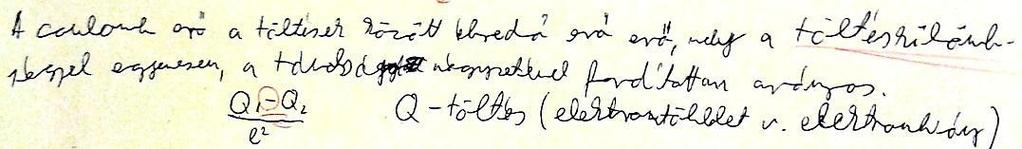 A coulomb erő a töltések között ébredő erő, mely a töltéskülömb-
séggel egyenesen, a távolság négyzetével fordítottan arányos.
Q₁-Q₂ / l² Q - töltés (elektrontöbblet v. elektronhiány)